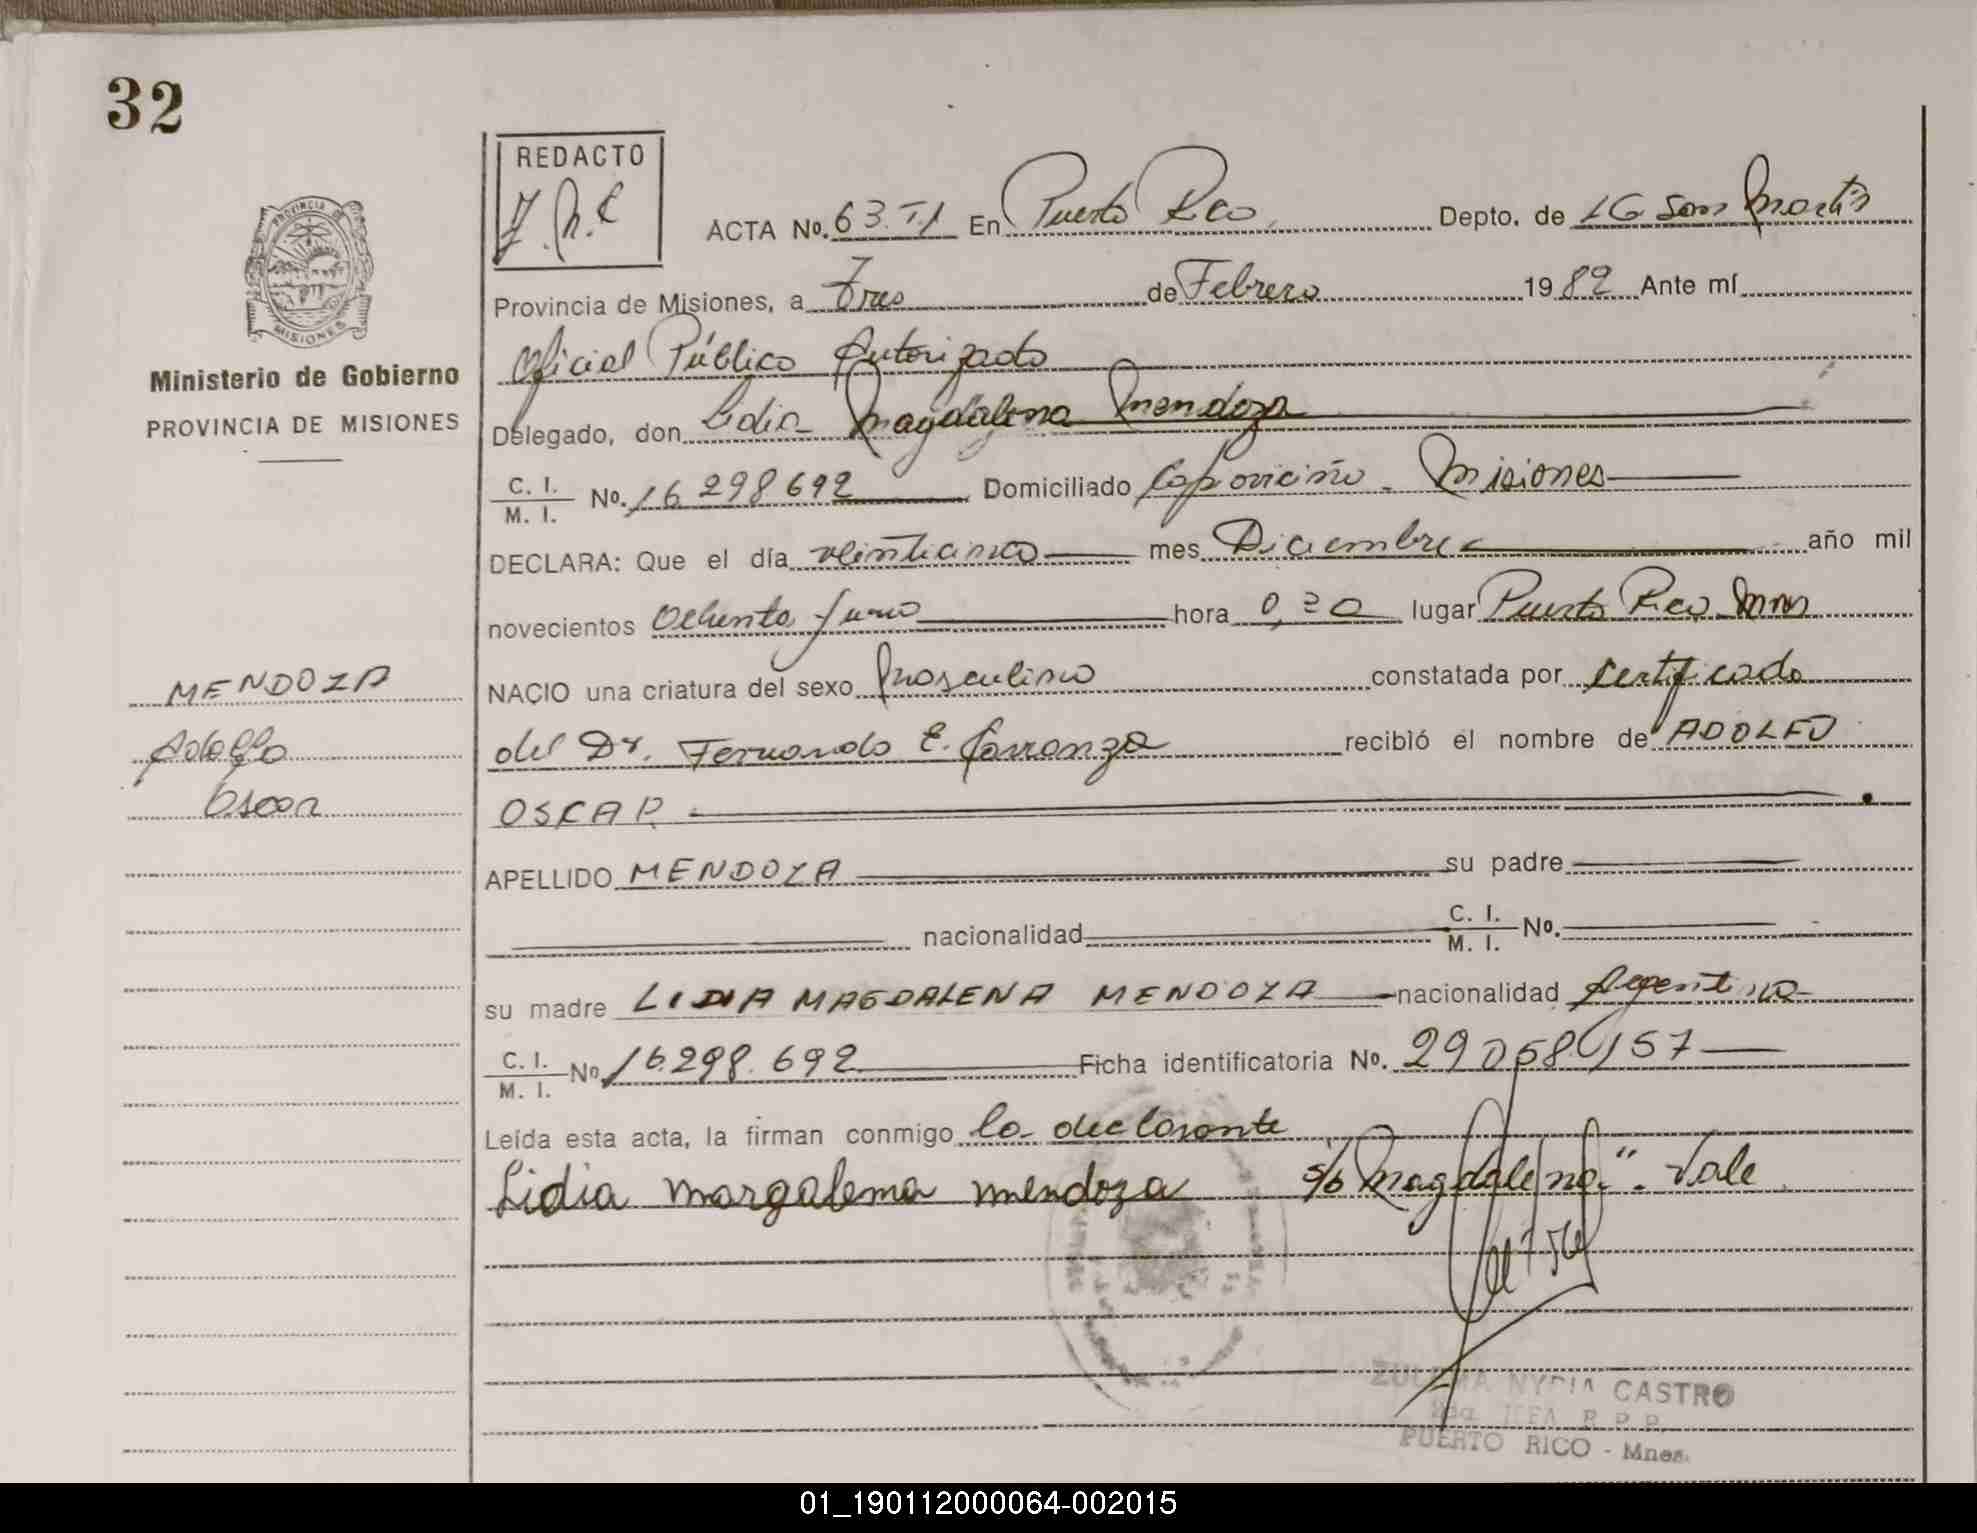 32
REDACTO
Z.N.C
ACTA No. 63. T1 En Puerto Rico, Depto. de LG San Martín
Provincia de Misiones, a tres de Febrero 1982 Ante mí
Oficial Público Autorizado
PROVINCIA DE
MISIONES
Ministerio de Gobierno
PROVINCIA DE MISIONES
Delegado, don Lidia Magdalena Mendoza
C. I.
M. I. No. 16.298.692 Domiciliado Capioviciño - Misiones
DECLARA: Que el día veinticinco mes Diciembre año mil
novecientos Ochenta y uno hora 0,30 lugar Puerto Rico Mnes
MENDOZA
NACIO una criatura del sexo Masculino constatada por certificado
Adolfo
del Dr. Fernando E. Carranza recibió el nombre de ADOLFO
Oscar
OSCAR
APELLIDO MENDOZA su padre
nacionalidad C. I.
M. I. No.
su madre LIDIA MAGDALENA MENDOZA nacionalidad Argentina
C. I.
M. I. No 16.298.692 Ficha identificatoria No. 29.058.157
Leída esta acta, la firman conmigo la declarante
Lidia Margalema mendoza s/b "Magdalena". Vale
ZULEMA NYDIA CASTRO
R.P.P.
PUERTO RICO - Mnes.
01_190112000064-002015